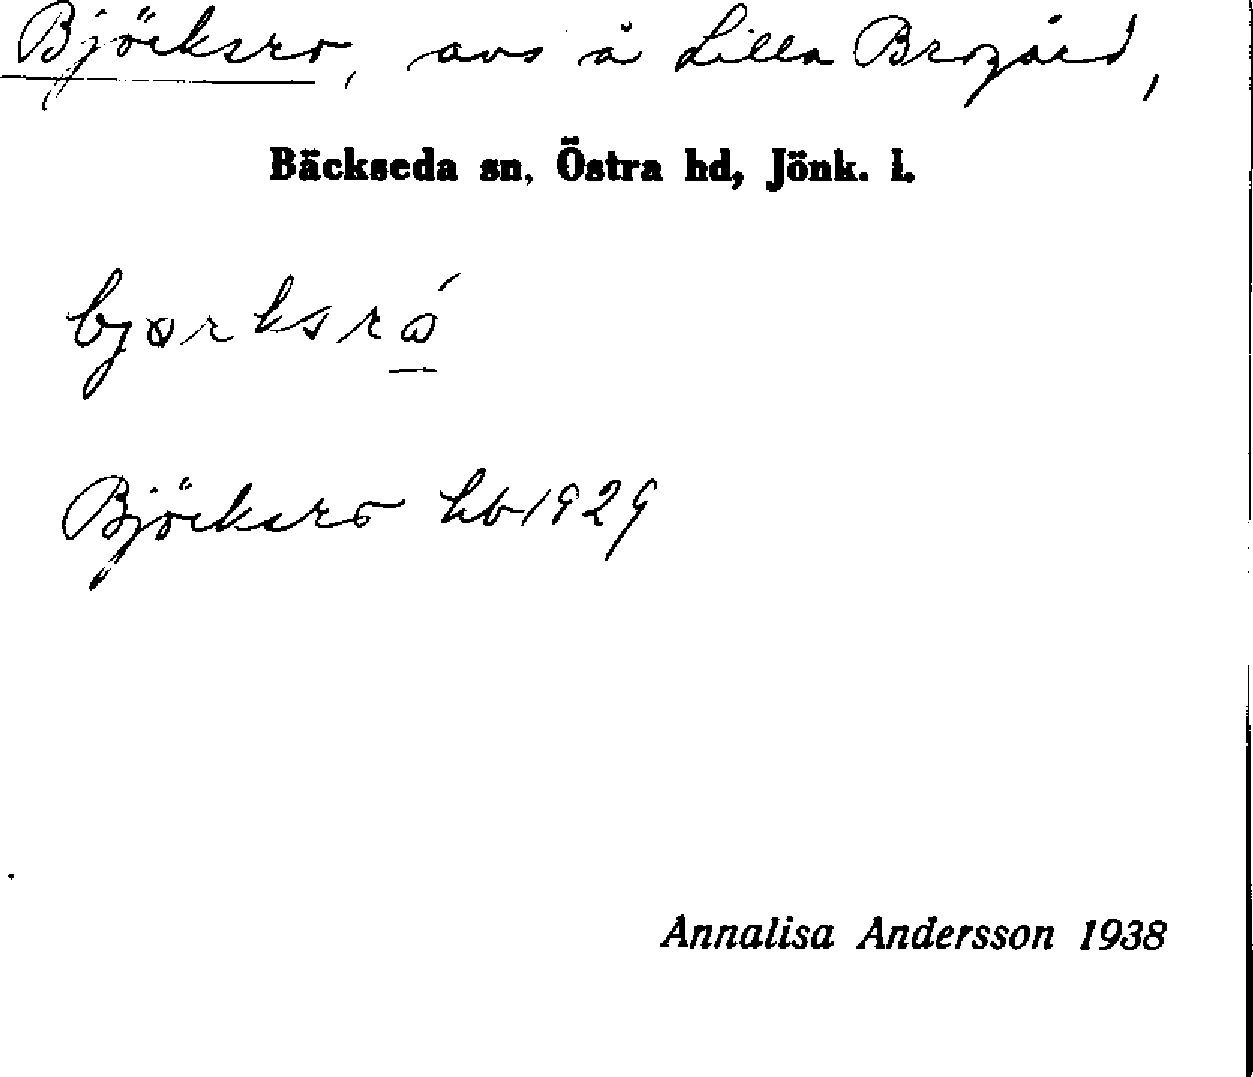 Björksro, avs å Lilla Brogård,
Bäckseda sn, Östra hd, Jönk. l.
bjørksró
Björksro hb 1929
Annalisa Andersson 1938